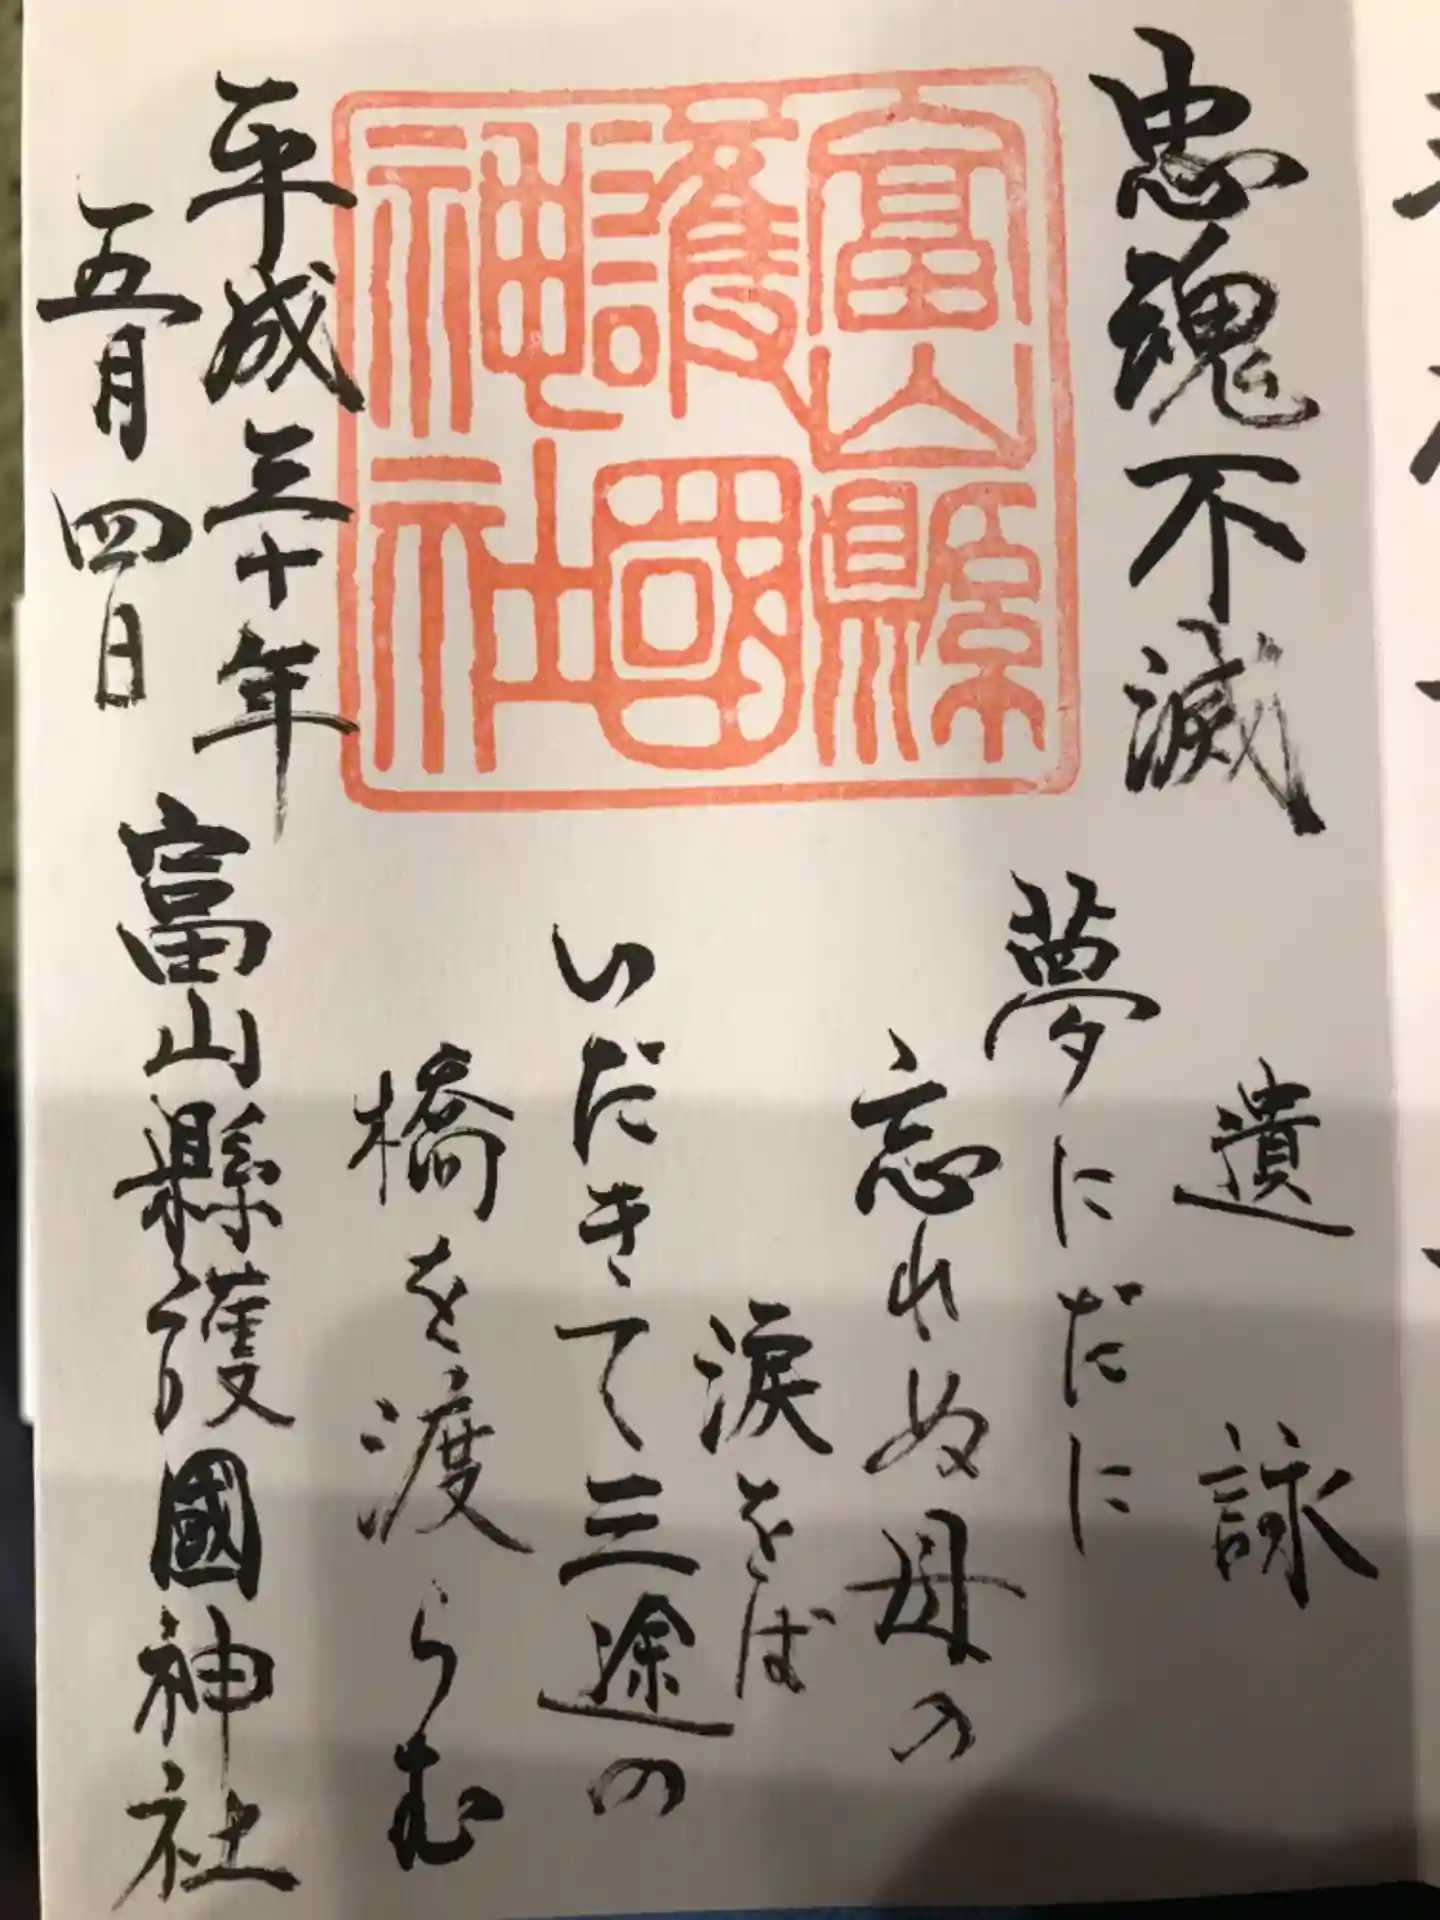 忠魂不滅
遺詠
夢にだに
忘れぬ母の
涙をば
いだきて三途の
橋を渡らむ
富山縣
護國
神社
平成三十年
五月四日
富山縣護國神社